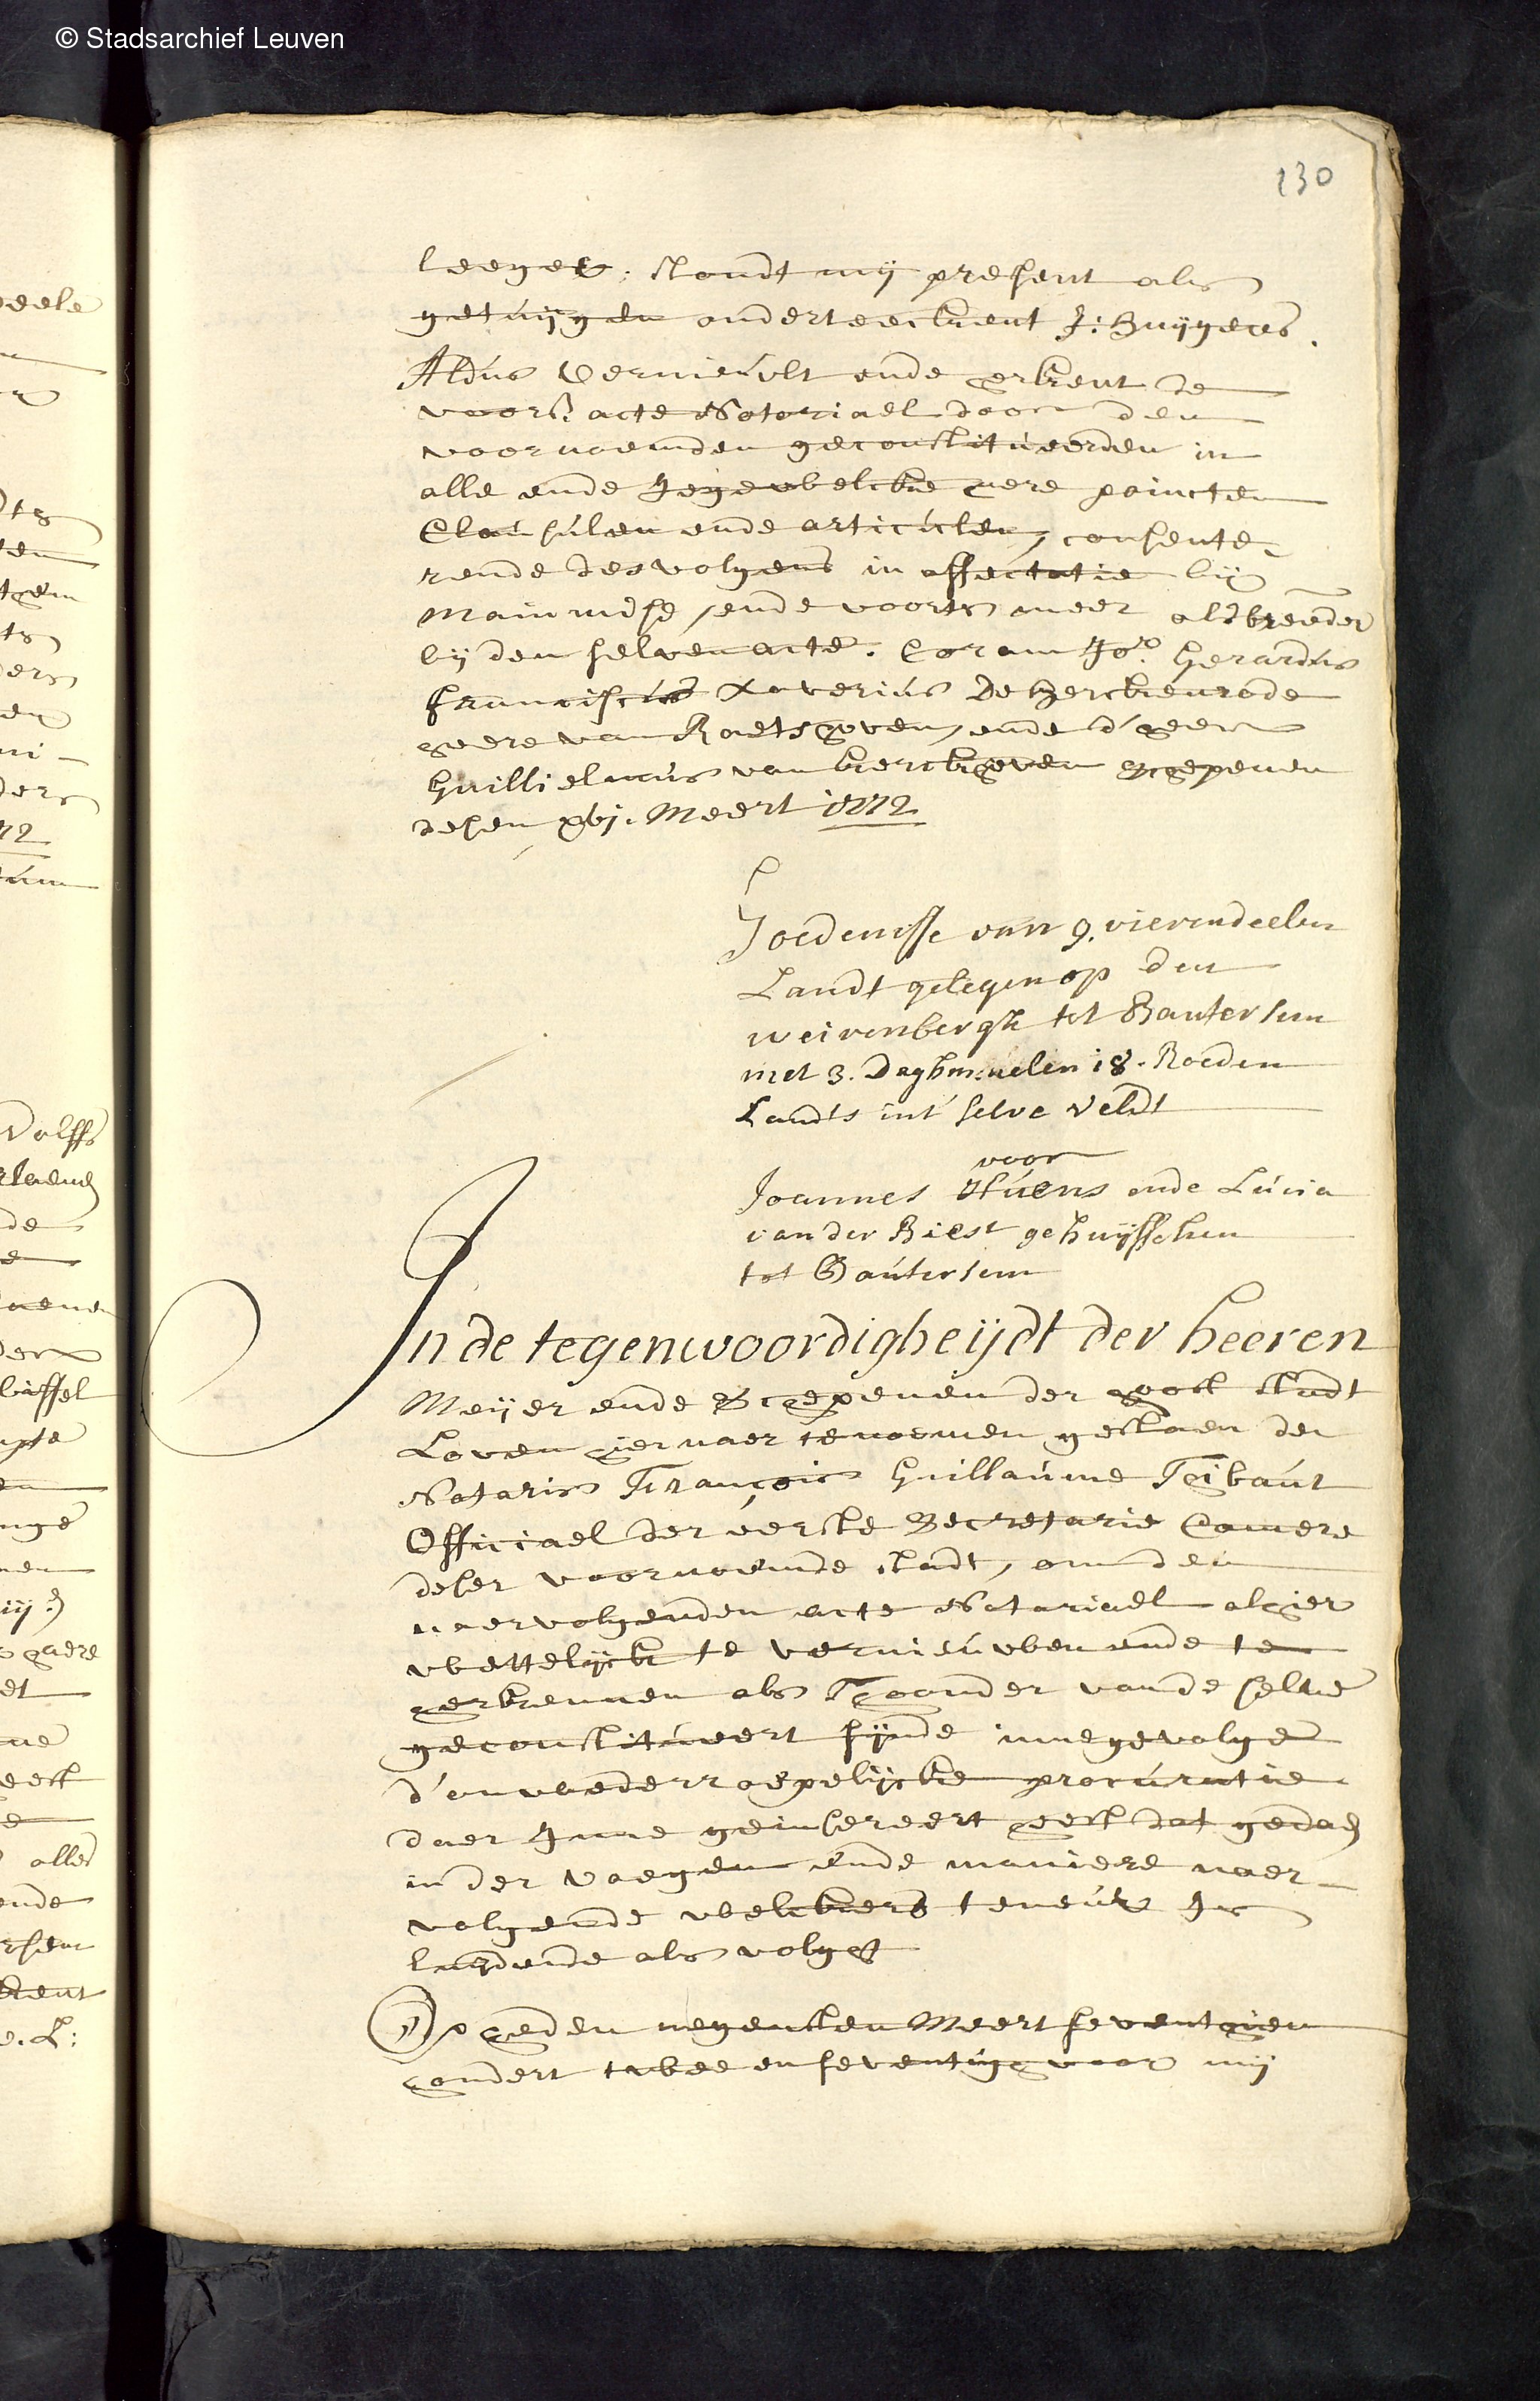 © Stadsarchief Leuven
130
leeger, stondt mij present als
getuijgen onderteeckent J: Huijgens.
Aldus vernieuvt ende herkent de
voors. acte Notariael door den
voornoemden geconstitueerden in
alle ende Jegewelcke here poincten
Clausulen ende articulen, consente-
rende desvolgens in affectatie bij
mainmise, ende voorts meer als breeder
bij den selven acte. Coram Jor. Gerardus
Franciscus Xaverius De Herckenrode
heere van Roetshoven, ende d'heer
Guillielmus van kerckhoven Schepenen
desen xvj. Meert 1772
Goedenisse van 9. vierendeelen
Landt gelegen op den
weirenbergh tot Bautersem
met 3. Daghmaelen 18. Roeden
Landts int' selve veldt
voor
Joannes Stuens ende Lucia
van der Biest gehuijsschen
tot Bautersem
In de tegenwoordigheijdt der heeren
Meijer ende Schepenen der hooft stadt
Loven hier naer te noemen gestaen den
Notaris François Guillaume Thibaut
Officiael der eerste Secretarie Camere
deser voornoemde stadt, om den
naervolgenden acte Notariael alhier
wettelijck te vernieuwen ende te
herkennen als Thoonder vande selve
geconstitueert sijnde innegevolge
d'onwederroepelijcke procuratie
daer Inne geinsereert heeft dat gedaen
in der voegen ende maniere naer-
volgende welckers teneur Is
luydende als volght
Op heden negensten Meert seventhien
hondert twee en seventigh voor mij